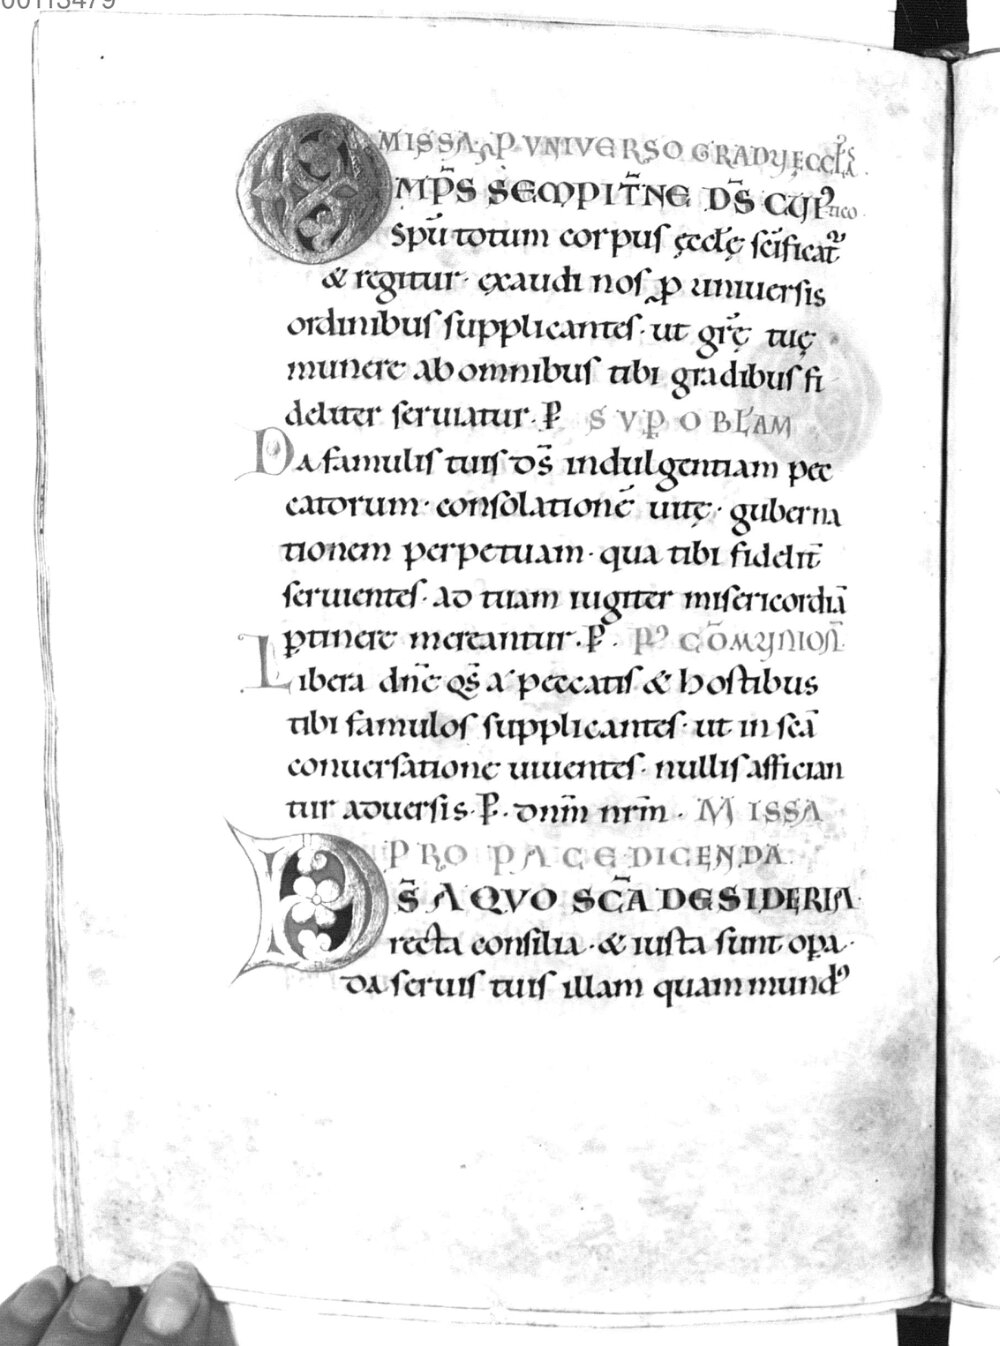 00113479
MISSA P̱ VNIVERSO GRADV ĘCCLĘ
OMP̄S SEMPIT̄NE D̄S CUI
Sp̄u totum corpus ęcclę sc̄ificat᷑
& regitur· ęxaudi nos ꝓ uniuersis
ordinibus supplicantes· ut gr̄ę tuę
munere ab omnibus tibi gradibus fi
deliter seruiatur· P̱ SVP OBLAM
Da famulis tuis d̄s indulgentiam pec
catorum· consolationē uitę· guberna
tionem perpetuam· qua tibi fidelit̄
seruientes· ad tuam iugiter misericordiā
ꝑtinere mereantur· P̱· Pꝰ CŌMUNION̄
Libera dn̄e qs̄ a peccatis & hostibus
tibi famulos supplicantes· ut in scā
conuersatione uiuentes· nullis affician
tur aduersis· P̱· dnm̄ nrm̄· MISSA
PRO PACE DICENDA
DS̄ A QVO SC̄A DESIDERIA
recta consilia· & iusta sunt oꝑa·
da seruis tuis illam quam mundꝰ